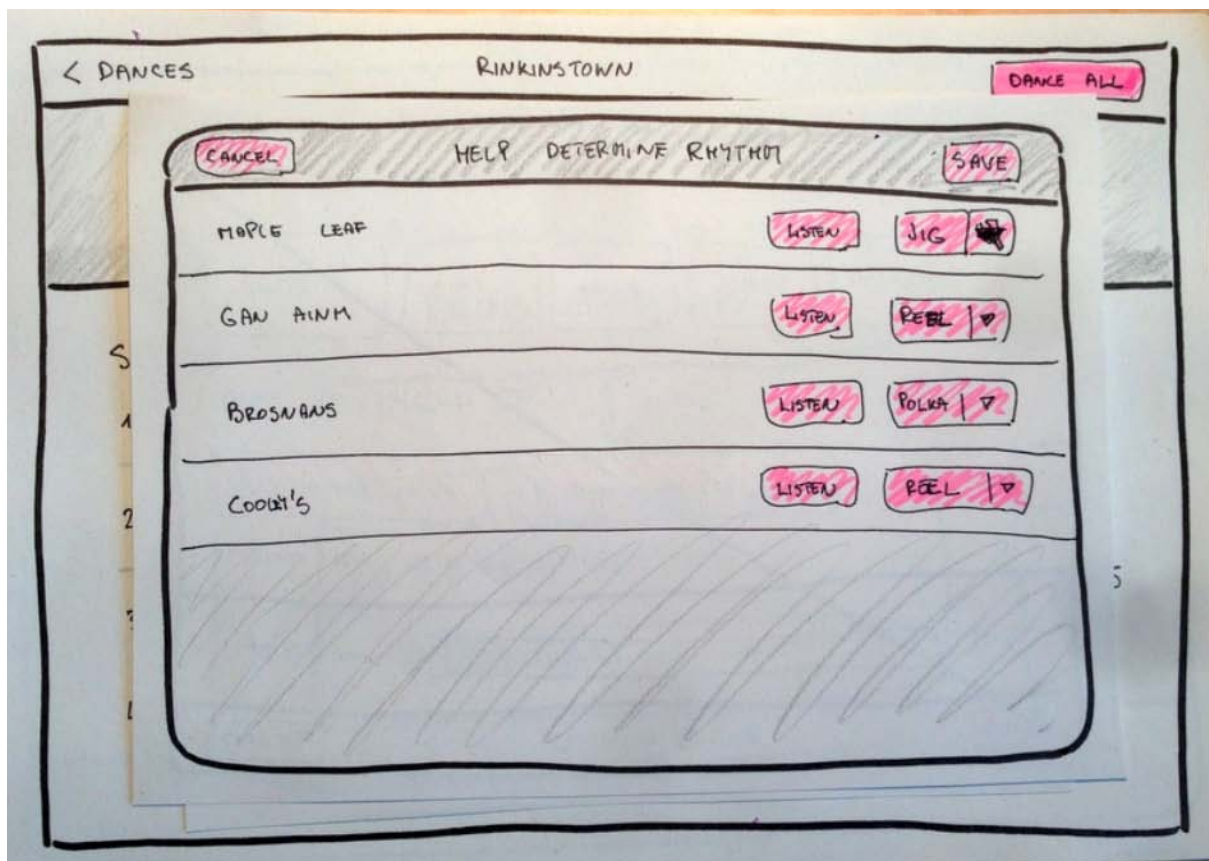 < DANCES RINKINSTOWN DANCE ALL
CANCEL HELP DETERMINE RHYTHM SAVE
MAPLE LEAF LISTEN JIG
GAN AINM LISTEN REEL
S
1
BROSNANS LISTEN POLKA
2
COOLEY'S LISTEN REEL
3
5